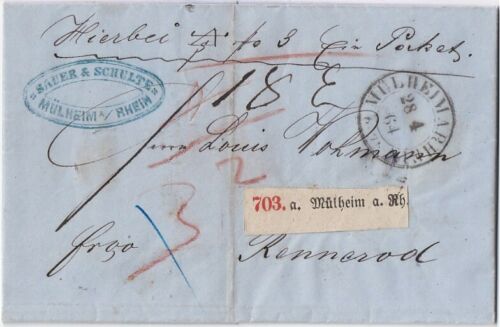 Hierbei No 3 Ein Packet.
SAUER & SCHULTE
MÜLHEIM A/ RHEIN
MÜLHEIM A RHEIN
28 4
64
18
Herrn Louis
2
703. a. Mülheim a. Rh.
3
frco Rennerod